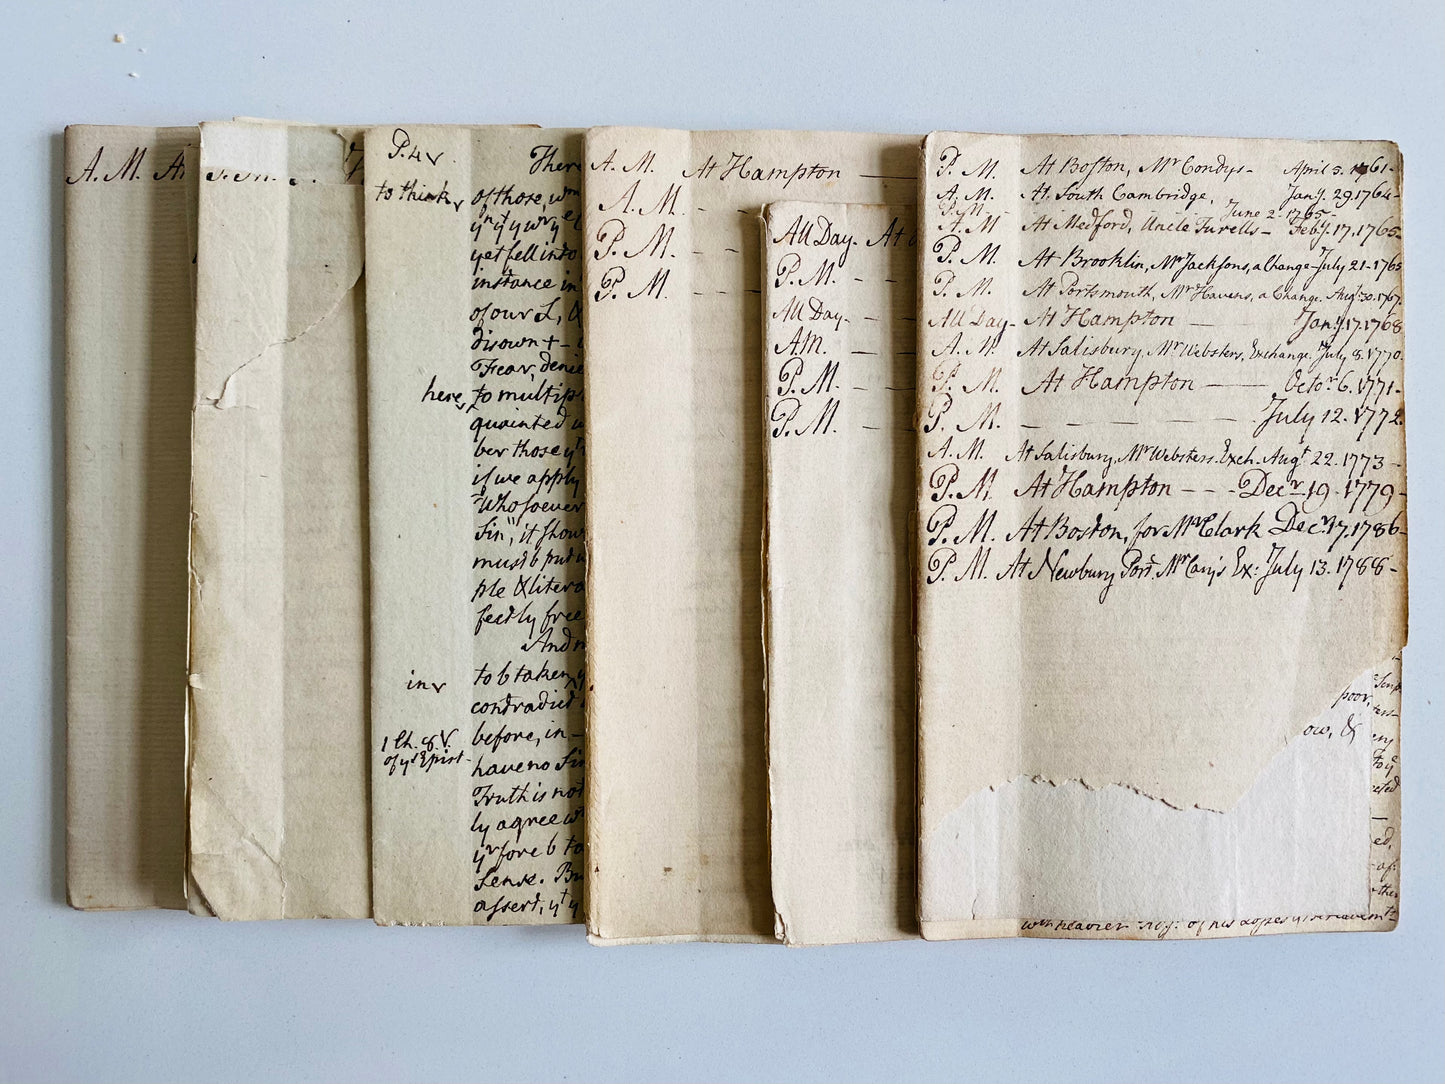 A. M. At
P. 4 v.
There
to think v
of those, wm
yet fell into
instance in
of our L, &
disown +-
Fear, denie
here v
to multip
quainted
ber those yt
if we apply
"Whosoever
Sin", it show
must b put
ple & litera
fectly free
And
in v
to b taken
contradict
before, in -
1 Ch. 8. v.
of ys Epist -
have no Sin
Truth is not
ly agree wt
yrfore b to
Sense. Bu
assert, yt y
A. M. At Hampton —
A. M. - -
P. M. - -
P. M. - - -
All Day - At
P. M. - -
All Day - -
A.M. — —
P. M. — —
P. M. — —
P. M. At Boston, Mr Condys - April 5. 1761 -
A. M. At South Cambridge, Jany. 29. 1764 -
P. M. - - June 2. 1765 -
A. M At Medford, Uncle Turells - Feby. 17. 1765 -
P. M. At Brooklin, Mr Jacksons, a Change - July 21 - 1765
P. M. At Portsmouth, Mr Havens, a Change. Augt 30. 1767.
All Day - At Hampton — Jany. 17. 1768
A. M. At Salisbury, Mr Websters, Exchange. July 8. 1770.
P. M. At Hampton — Octor 6. 1771 -
P. M. — — — — July 12. 1772.
A. M. At Salisbury, Mr Websters. Exch. Augt 22. 1773 -
P. M. At Hampton - - - Decr 19. 1779 -
P. M. At Boston, for Mr Clark Decr. 17. 1786 -
P. M. At Newbury Port Mr Cary's Ex: July 13. 1788 -
poor,
ow, &
ed,